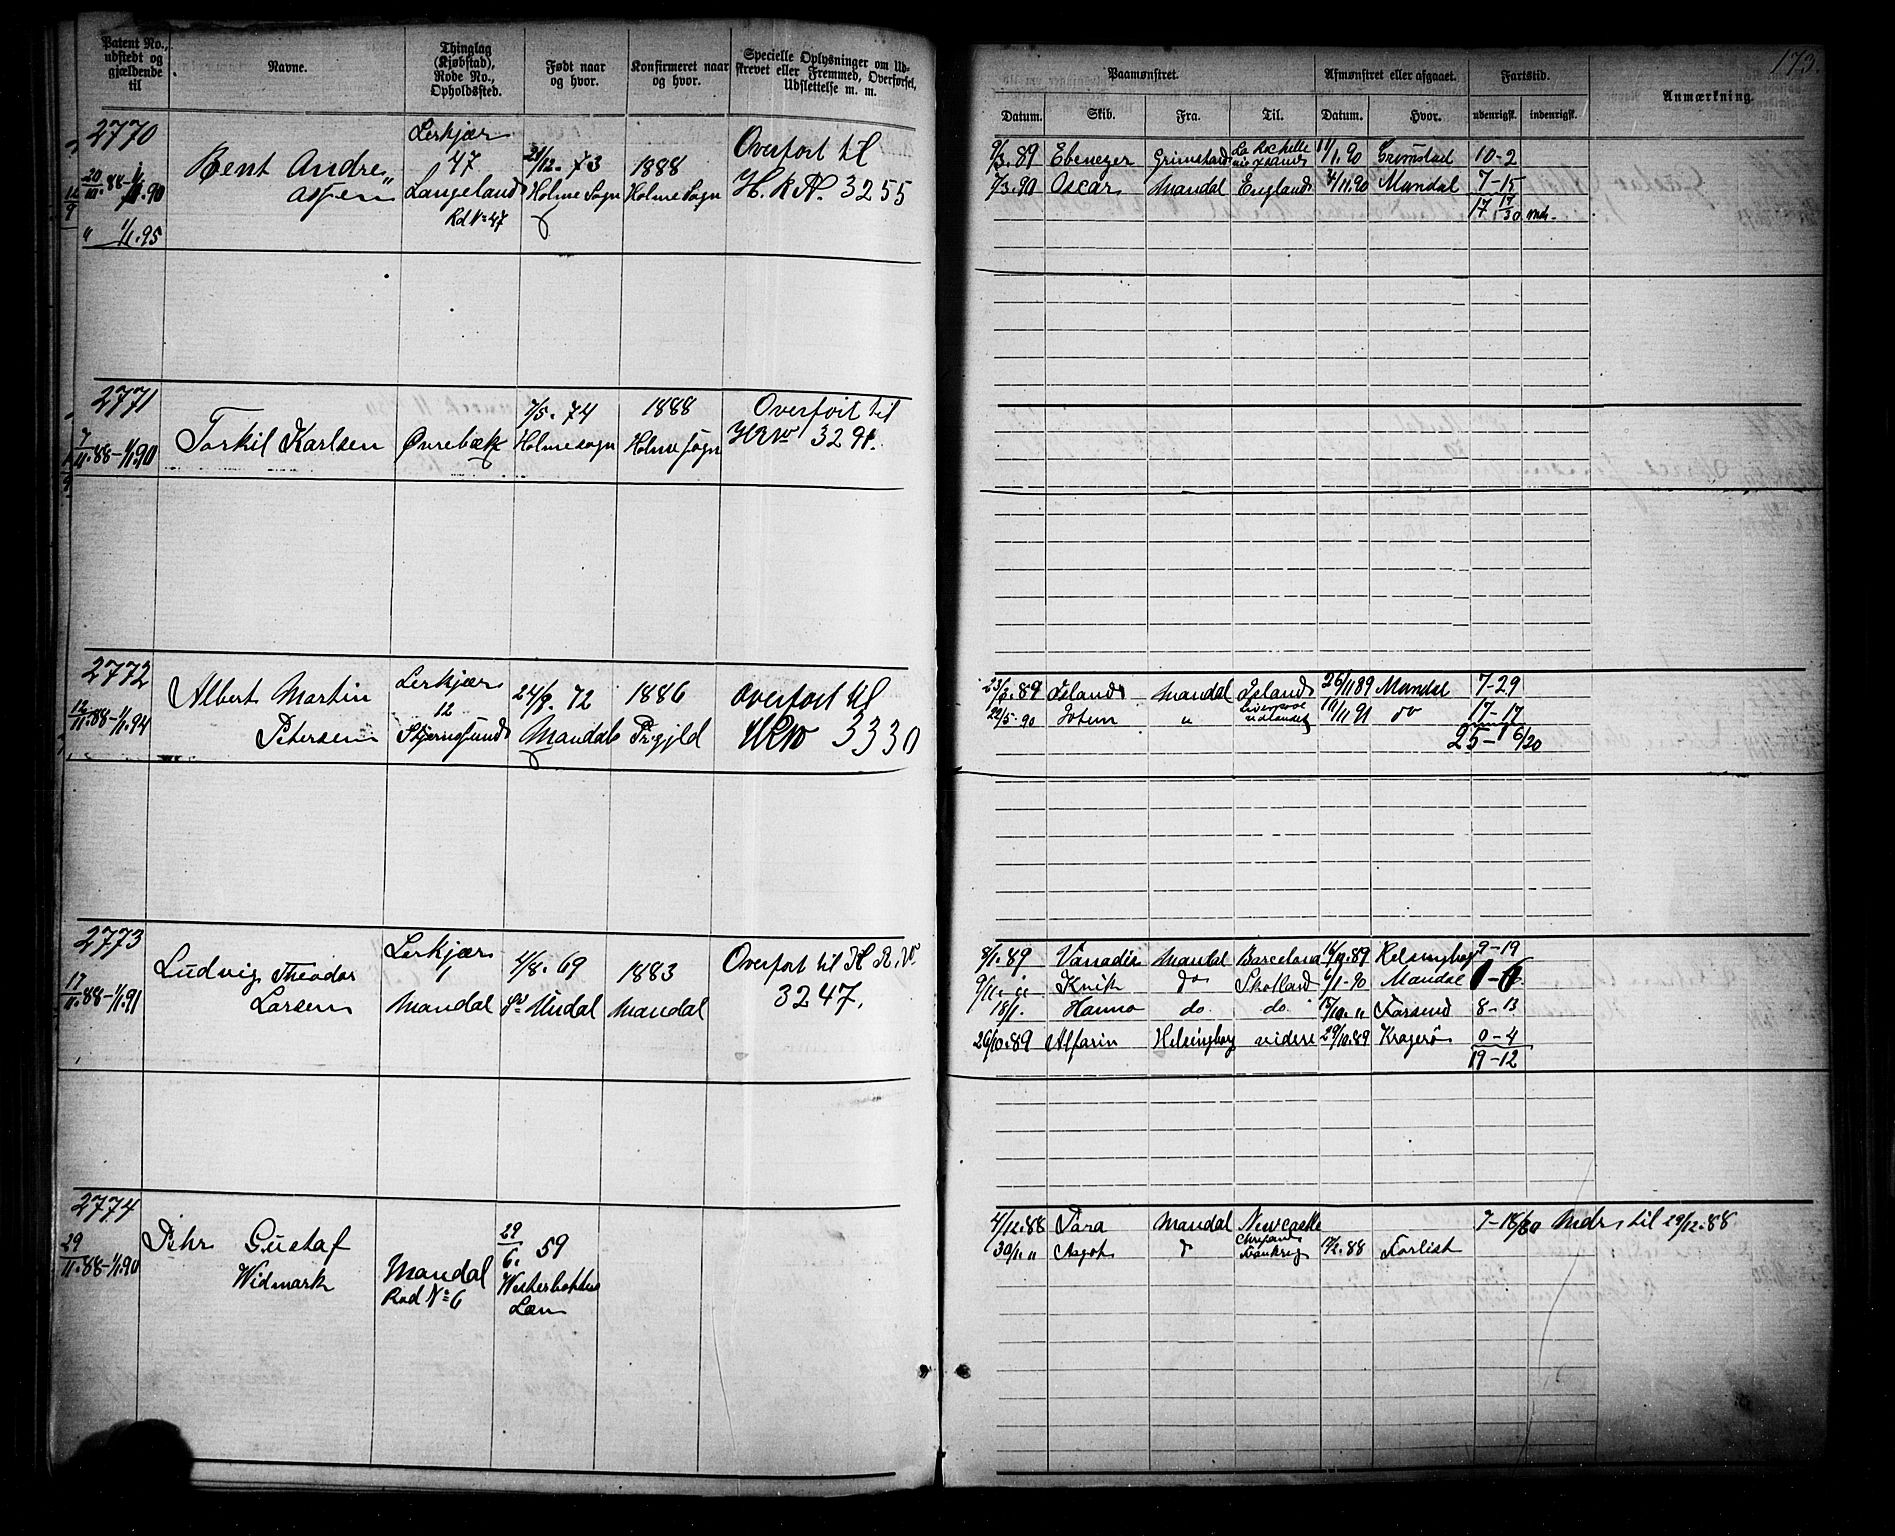 173.
Patent No., udstedt og gjældende til
Navne.
Thinglag (Kjøbstad), Rode No., Opholdssted.
Født naar og hvor.
Konfirmeret naar og hvor.
Specielle Oplysninger om Udskrevet eller Fremmed, Overførsel, Udslettelse m. m.
Paamønstret.
Afmønstret eller afgaaet.
Fartstid.
Anmærkning.
Datum. Skib. Fra. Til. Datum. Hvor. udenrigsk. indenrigsk.
2770
Bent Andreas
Lerkjær
47
Langeland
Rd No 47
21/12. 73
Holme Sogn
1888
Holme Sogn
Overført til
H. R. A. 3255
1/1.95
9/3.89 Ebenezer Grimstad La Rochelle 11/1.90 Grimstad 10-2
7/3.90 Oscar Mandal England 4/11.90 Mandal 7-15
17 17/30 mdr.
2771
7/11.88-1/1.90
Torkil Karlsen
Øvrebæk
7/5. 74
Holme sogn
1888
Holme sogn
Overført til
3291.
2772
12/11.88-1/1.94
Albert Martin
Petersen
Lerkjær
12
Skjernøsund
24/9. 72
Mandal
1886
Prgjld
Overført til
3330
23/3.89 Island Mandal Island 26/11 89 Mandal 7-29
22/5.90 Jotun " Liverpool udlandet 19/11.91 do 17-17
25-16/20
2773
17/11.88-1/1.91
Ludvig Theodor
Larsen
Lerkjær
1
Mandal
4/8. 69
Sd Undal
1883
Mandal
Overført til H. R. No
3247.
8/1.89 Vanadis Mandal Barcelona 16/10.89 Helsingborg 9-19
9/11. Knik do Skotland 6/1-90 Mandal
18/1. Hanna do. do. 15/10. " Farsund 8-13
26/10.89 Alfarin Helsingborg videre 29/10.89 Kragerø 0-4
19-12
2774
29/11.88-1/1.90
Pehr Gustaf
Widmark
Mandal
Rod No 6
29/6. 59
Westerbottens
Læn
4/12.88 Tara Mandal Newcastle 7-18/30 Mdr. til 29/12.88
30/1 " Aagot d Frankrig 12/2.88 Forlist